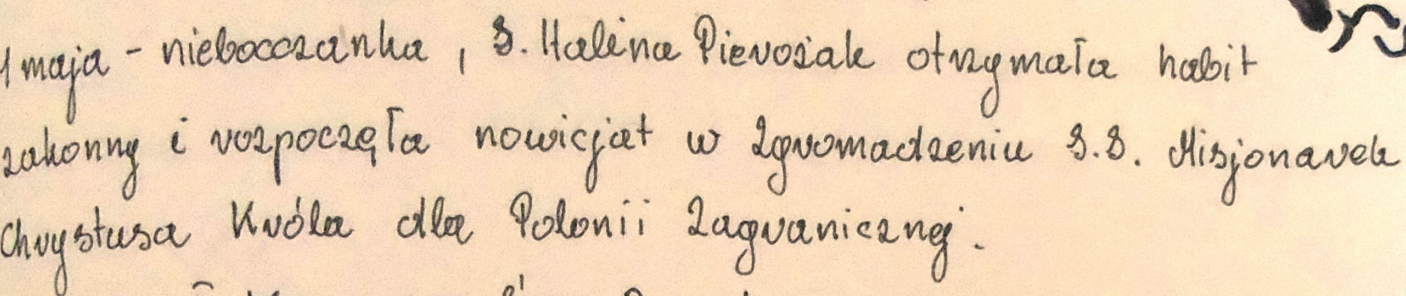 1 maja - niebocczanka, S. Halina Pierożak otrzymała habit
zakonny i rozpoczęła nowicjat w Zgromadzeniu S.S. Misjonarek
Chrystusa Króla dla Polonii Zagranicznej.